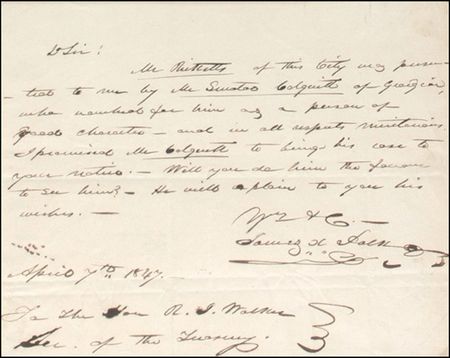 D Sir!
Mr Ricketts of this City was presen-
-ted to me by Mr Senator Colquitt of Georgia,
who vouched for him as a person of
good character - and in all respects meritorious.
I promised Mr Colquitt to bring his case to
your notice. - Will you do him the favour
to see him? - He will explain to you his
wishes. -
Yrs &C. -
James K Polk
April 7th 1847.
To The Hon R. J. Walker
Sec. of the Treasury